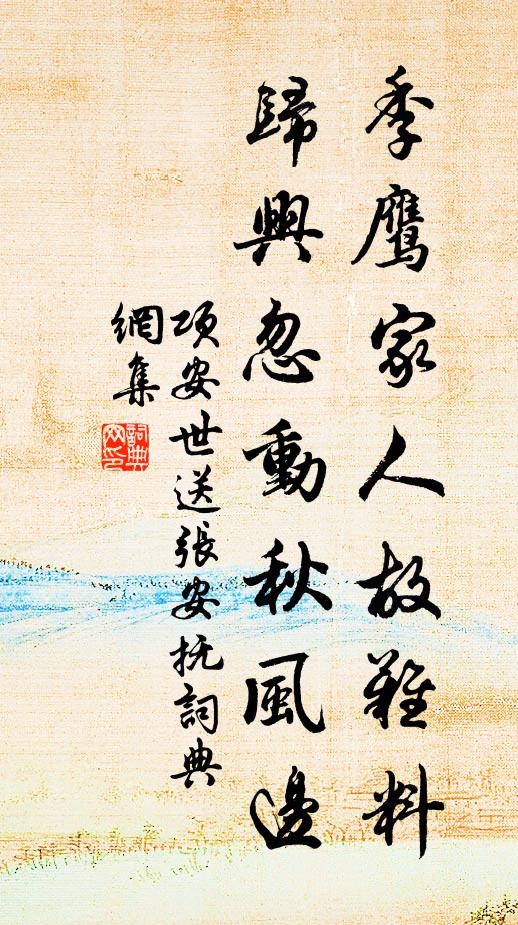 季鹰家人故難料
歸興忽動秋風邊
项安世送張安抚詞典
網集
詞典